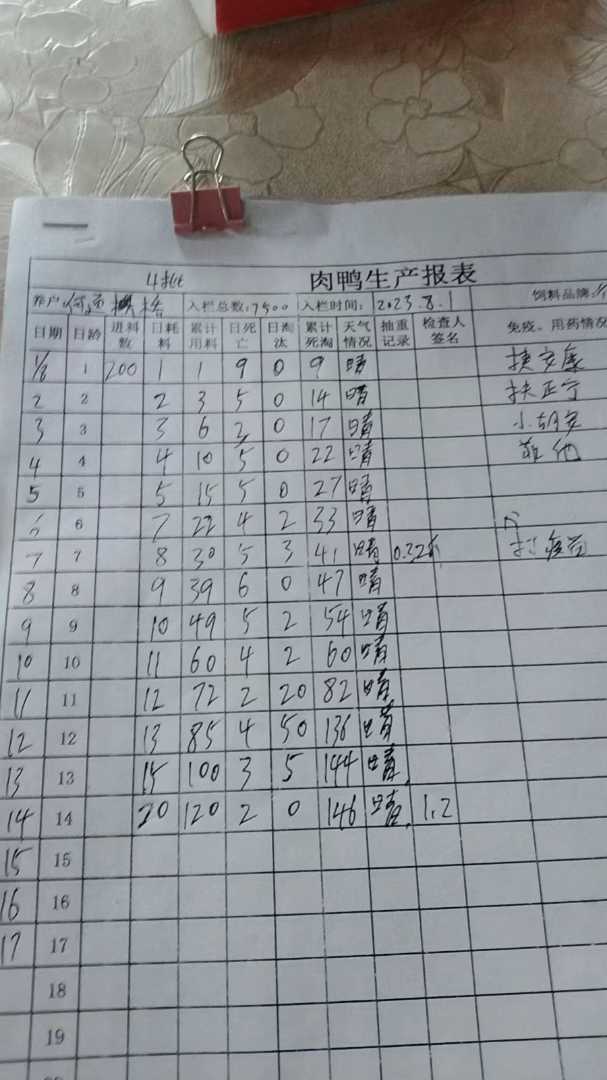 4批 肉鸭生产报表
养户: 入栏总数:7500 入栏时间: 2023.8.1 饲料品牌:
日期 日龄 进料数 日耗料 累计用料 日死亡 日淘汰 累计死淘 天气情况 抽重记录 检查人签名 免疫、用药情况
1/8 1 200 1 1 9 0 9 晴
2 2 2 3 5 0 14 晴 扶正宁
3 3 3 6 3 0 17 晴
4 4 4 10 5 0 22 晴
5 5 5 15 5 0 27 晴
6 6 7 22 4 2 33 晴
7 7 8 30 5 3 41 晴 0.32斤
8 8 9 39 6 0 47 晴
9 9 10 49 5 2 54 晴
10 10 11 60 4 2 60 晴
11 11 12 72 2 20 82 晴
12 12 13 85 4 50 136 晴
13 13 15 100 3 5 144 晴
14 14 20 120 2 0 146 晴 1.2
15 15
16 16
17 17
18
19